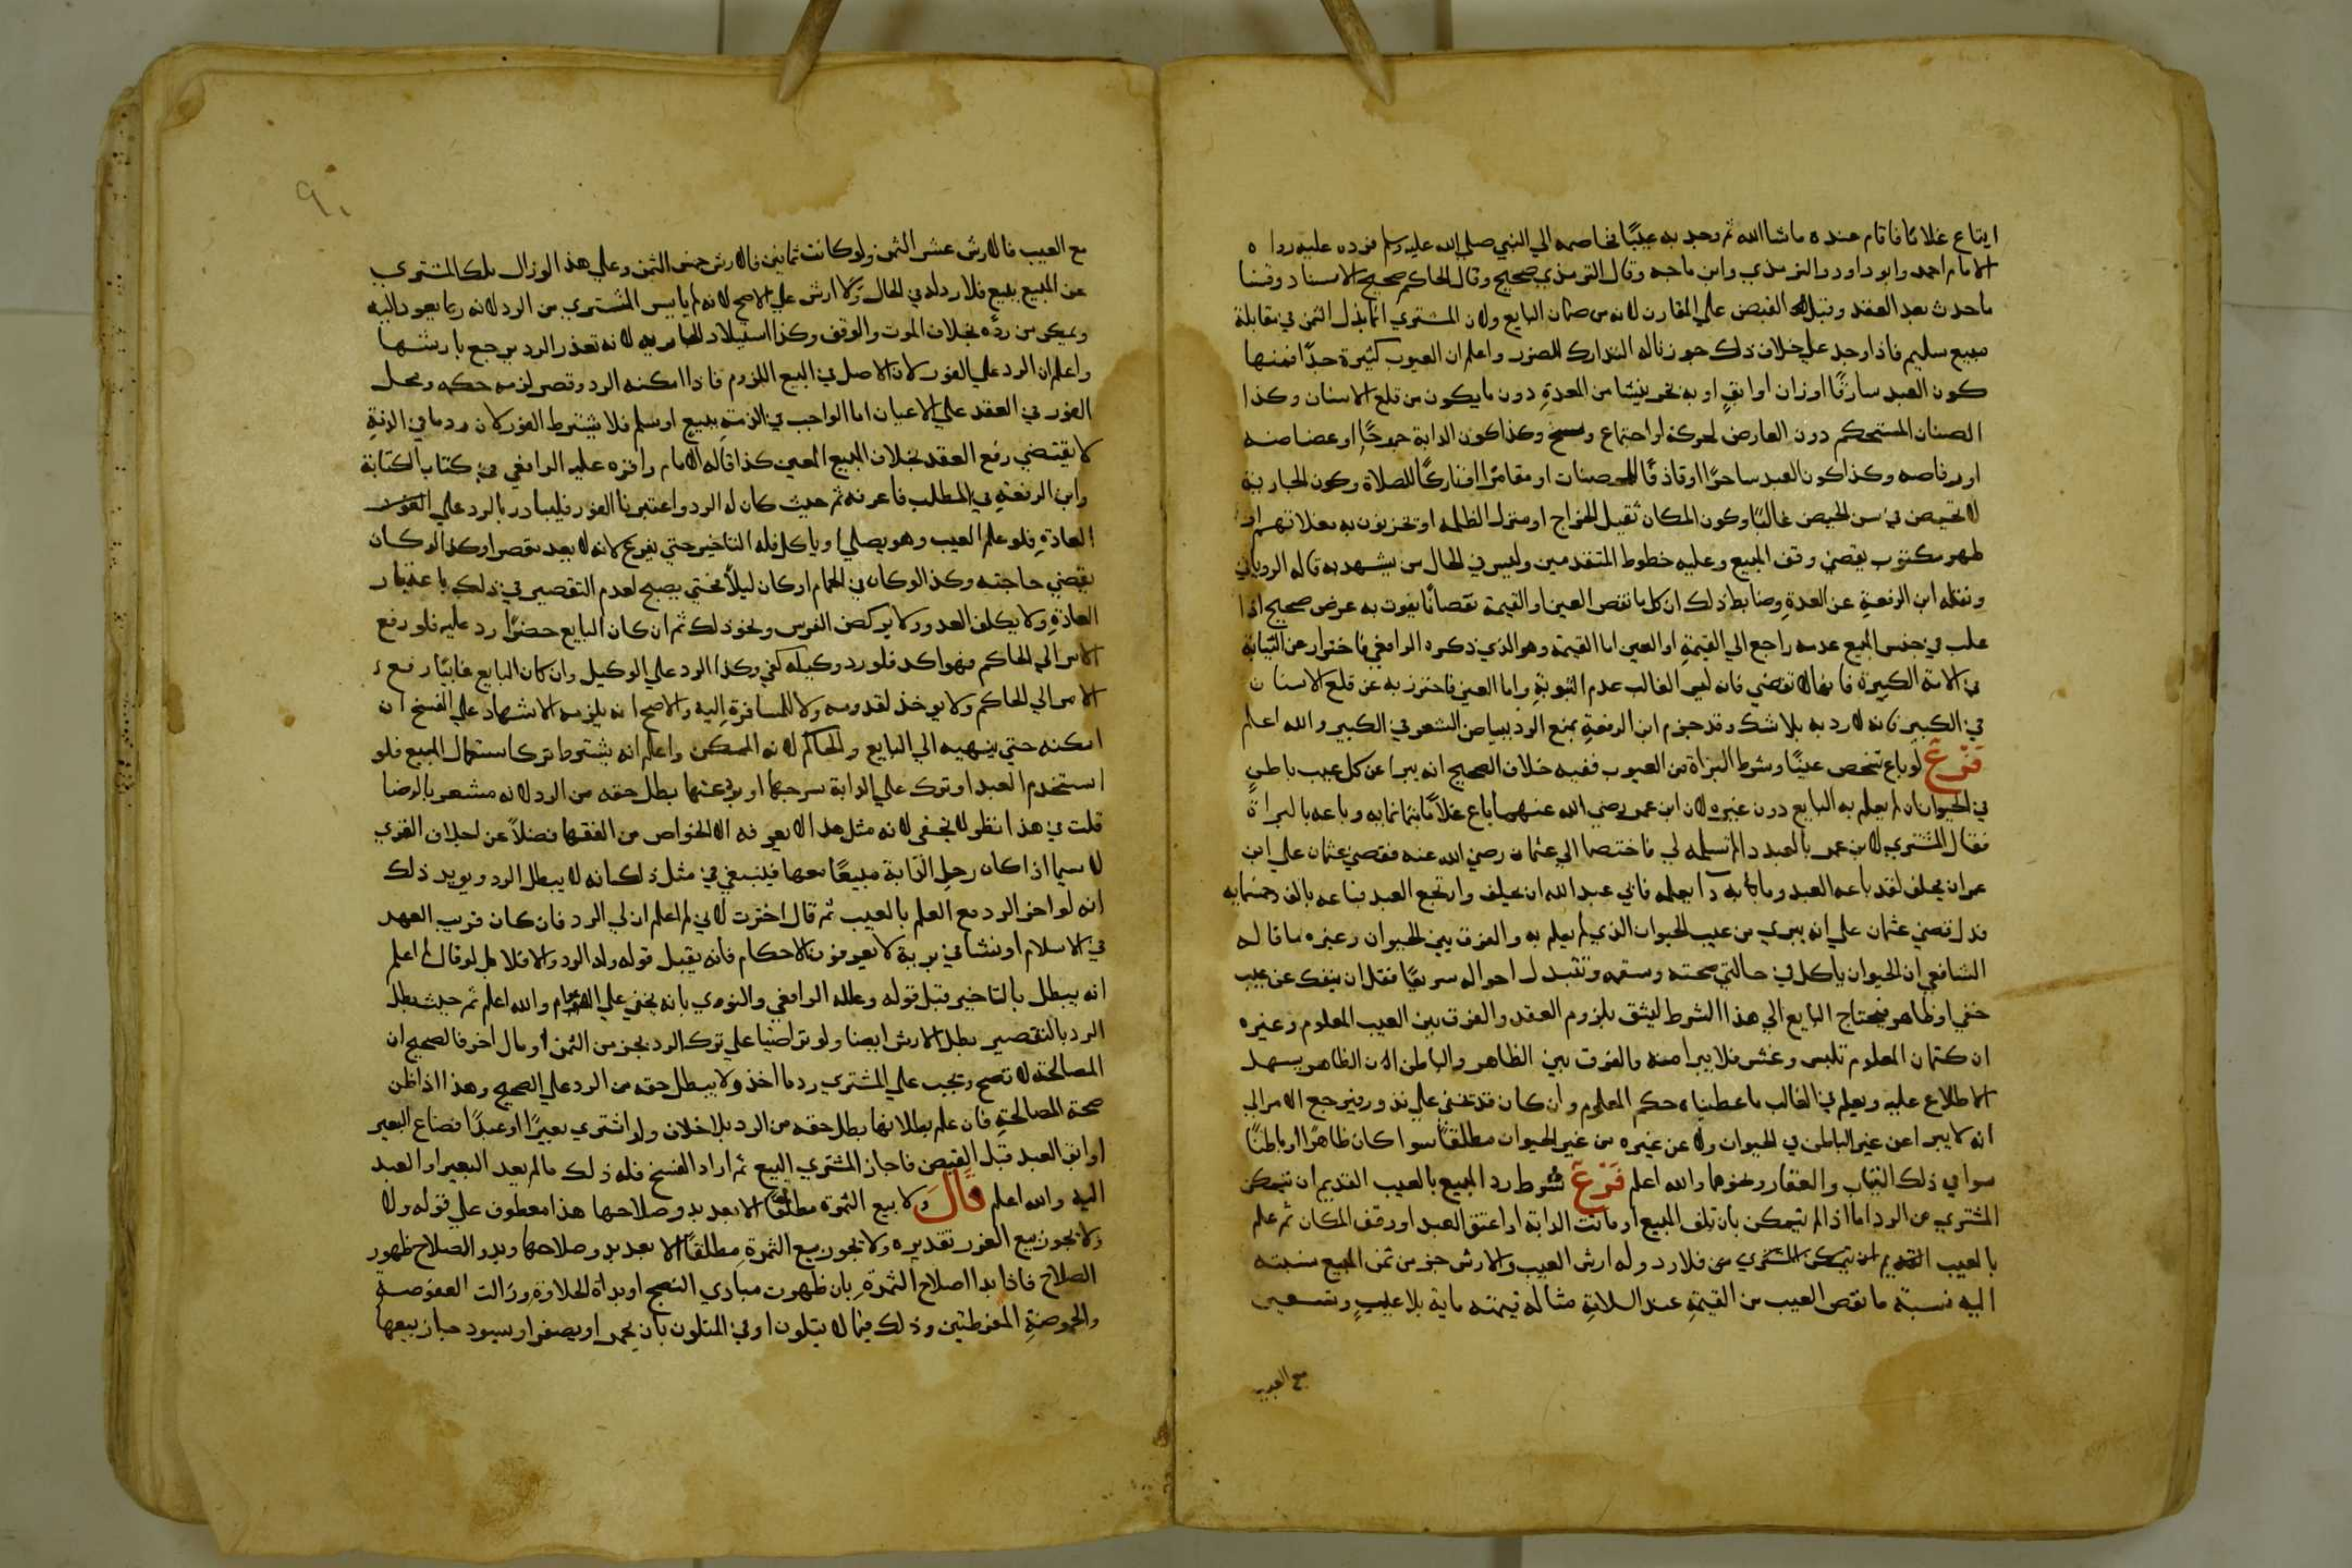 ابتاع غلامًا فاقام عنده ماشاالله ثم وجد به عيبًا فخاصمه الي النبي صلي الله عليه وسلم فرده عليه رواه
الامام احمد وابو داود والترمذي وابن ماجه وقال الترمذي صحيح وقال الحاكم صحيح الاسناد وقسنا
ماحدث بعد العقد وقبل القبض علي المقارن لانه من ضمان البايع ولان المشتري انما بذل الثمن في مقابلة
مبيع سليم فاذا وجد علي خلاف ذلك جوزنا له التدارك للضرر واعلم ان العيوب كثيرة جدًا فمنها
كون العبد سارقًا او زان او ابقٍ او به بخر ينشا من المعدةِ دون مايكون من قلع الاسنان وكذا
الصنان المستحكم دون العارض لحركة او اجتماع وسخ وكذا كون الدابة جموحًا او عضاضه
او رفاصه وكذا كون العبد ساحرًا او قاذفًا للمحصنات او مقامرًا او تاركًا للصلاة وكون الجارية
لا تحيض في سن الحيض غالبًا وكون المكان ثقيل الخراج او منزل الظلمه او تخزنون به غلاتهم او
ظهر مكتوب يقضي وقف المبيع وعليه خطوط المتقدمين وليس في الحال من يشهد به قاله الروياني
ونقله ابن الرفعةِ عن العدةِ وضابط ذلك ان كل ما نقص العين او القيمة نقصانًا يفوت به غرض صحيح اذا
غلب في جنس المبيع عدمه راجع الي القيمةِ او العين اما القيمة وهو الذي ذكره الرافعي فاحتراز عن الثيابة
في الامة الكبيرة فانها لا تقتضي فانه ليس الغالب عدم الثيوبةِ واما العين فاحترز به عن قلع الاسنان
في الكبير فانه لا رد به بلا شك وقد جزم ابن الرفعةِ بمنع الرد ببياض الشعر في الكبير والله اعلم
فَرْعٌ لو باع شخص عينًا وشرط البراة من العيوب ففيه خلاف الصحيح انه يبرا عن كل عيب باطنٍ
في الحيوان لم يعلم به البايع دون غيره لان ابن عمر رضي الله عنهما باع غلامًا بثمانمايه وباعه بالبراة
فقال المشتري لابن عمر بالعبد دا لم تسمه لي فاختصما الي عثمان رضي الله عنه فقضي عثمان علي ابن
عمر ان يحلف لقد باعه العبد وما به دا يعلمه فابي عبد الله ان يحلف وارتجع العبد فباعه بالف وخمسمايه
فدل قضي عثمان علي انه يبري من عيب الحيوان الذي لم يعلم به والفرق بين الحيوان وغيره ما قاله
الشافعي ان الحيوان ياكل في حالتي صحته وسقمه وتتبدل احواله سريعًا فقل ان ينفك عن عيب
خفي او ظاهر فيحتاج البايع الي هذا الشرط ليثق بلزوم العقد والفرق بين العيب المعلوم وغيره
ان كتمان المعلوم تلبس وغش فلا يبرا منه والفرق بين الظاهر والباطن ان الظاهر يسهل
الاطلاع عليه ويعلم في الغالب فاعطيناه حكم المعلوم وان كان قد يخفي علي ندور فيرجع الامر الي
انه لا يبرا عن غير الباطن في الحيوان ولا عن غيره من غير الحيوان مطلقًا سوا كان ظاهرًا او باطنًا
سوا في ذلك الثياب والعقار ونحوها والله اعلم فَرْعٌ شرط رد المبيع بالعيب القديم ان يتمكن
المشتري من الرد اما اذا لم يتمكن بان تلف المبيع او ماتت الدابة او اعتق العبد او وقف المكان ثم علم
بالعيب القديم ان يتمكن المشتري من فلا رد وله ارش العيب والارش جز من ثمن المبيع نسبته
اليه نسبة ما نقص العيب من القيمةِ عند السلامةِ مثاله قيمته ماية بلا عيبٍ وتسعين
مع العيب
٩٠
مع العيب فالارش عشر الثمن ولو كانت ثمانين فالارش خمس الثمن وعلي هذا لو زال ملك المشتري
عن المبيع ببيع فلا رد له في الحال ولا ارش علي الاصح لانه لم يايس المشتري من الرد لانه ربما يعود اليه
ويمكن من رده بخلاف الموت والوقف وكذا استيلاد الجارية لانه تعذر الرد يرجع بارشها
واعلم ان الرد علي الفور لان الاصل في البيع اللزوم فاذا امكنه الرد وقصر لزمه حكمه ومحل
الفور في العقد علي الاعيان اما الواجب في الذمةِ ببيعٍ او سلم فلا يشترط الفور لان رد ما في الذمةِ
لا يقتضي رفع العقد بخلاف المبيع المعين كذا قاله الامام واقره عليه الرافعي في كتاب الكتابة
وابن الرفعةِ في المطلب فاعرفه ثم حيث كان له الرد واعتبرنا الفور فليبادر بالرد علي الفور
العادةِ فلو علم العيب وهو يصلي او ياكل فله التاخير حتي يفرغ لانه لا يعد مقصرا وكذا لو كان
يقضي حاجته وكذا لو كان في الحمام او كان ليلاً فحتي يصبح لعدم التقصير في ذلك باعتبار
العادةِ ولا يكلف العدو ولا يركض الفرس ونحو ذلك ثم ان كان البايع حضرًا رد عليه فلو رفع
الامر الي الحاكم فهو اكد فلو رد وكيله كفي وكذا الرد علي الوكيل وان كان البايع غايبًا رفع
الامر الي الحاكم ولا يوخذ لقدومه ولا للمسافرةِ اليه والاصح انه يلزمه الاشهاد علي الفسخ ان
امكنه حتي ينهيه الي البايع والحاكم لانه الممكن واعلم انه يشترط ترك استعمال المبيع فلو
استخدم العبد او ترك علي الدابة سرجها او برذعتها بطل حقه من الرد لانه مشعر بالرضا
قلت في هذا نظر لا يخفي لانه مثل هذا لا يعرفه الا الخواص من الفقها فضلاً عن اجلاف القري
لا سيما اذا كان رحل الدابة مبيعًا معها فينبغي في مثل ذلك انه لا يبطل الرد ويويد ذلك
انه لو اخر الرد مع العلم بالعيب ثم قال اخرت لاني لم اعلم ان لي الرد فان كان قريب العهد
في الاسلام او نشا في برية لا يعرفون الاحكام فانه يقبل قوله وله الرد والا فلا بل لو قال لم اعلم
انه يبطل بالتاخير قبل قوله وعلله الرافعي والنووي بانه يخفي علي العوام والله اعلم ثم حيث بطل
الرد بالتقصير بطل الارش ايضا ولو تراضيا علي ترك الرد بجز من الثمن او مال اخر فالصحيح ان
المصالحة لا تصح ويجب علي المشتري رد ما اخذ ولا يبطل حقه من الرد علي الصحيح وهذا اذا ظن
صحة المصالحةِ فان علم بطلانها بطل حقه من الرد بلا خلاف ولو اشتري بعيرًا او عبدًا فضاع البعير
او ابق العبد قبل القبض فاجاز المشتري البيع ثم اراد الفسخ فله ذلك مالم يعد البعير او العبد
اليه والله اعلم قَالَ ولا بيع الثمرة مطلقًا الا بعد بدو صلاحها هذا معطوف علي قوله ولا
ولا يجوز بيع الغرر تقديره ولا يجوز بيع الثمرةِ مطلقًا الا بعد بدو صلاحها وبدو الصلاح ظهور
الصلاح فاذا بدا اصلاح الثمرةِ بان ظهرت مبادي النضج او بداة الحلاوة وزالت العفوصة
والحموضةِ المفرطتين وذلك فيما لا يتلون او في المتلون بان يحمر او يصفر او يسود جاز بيعها